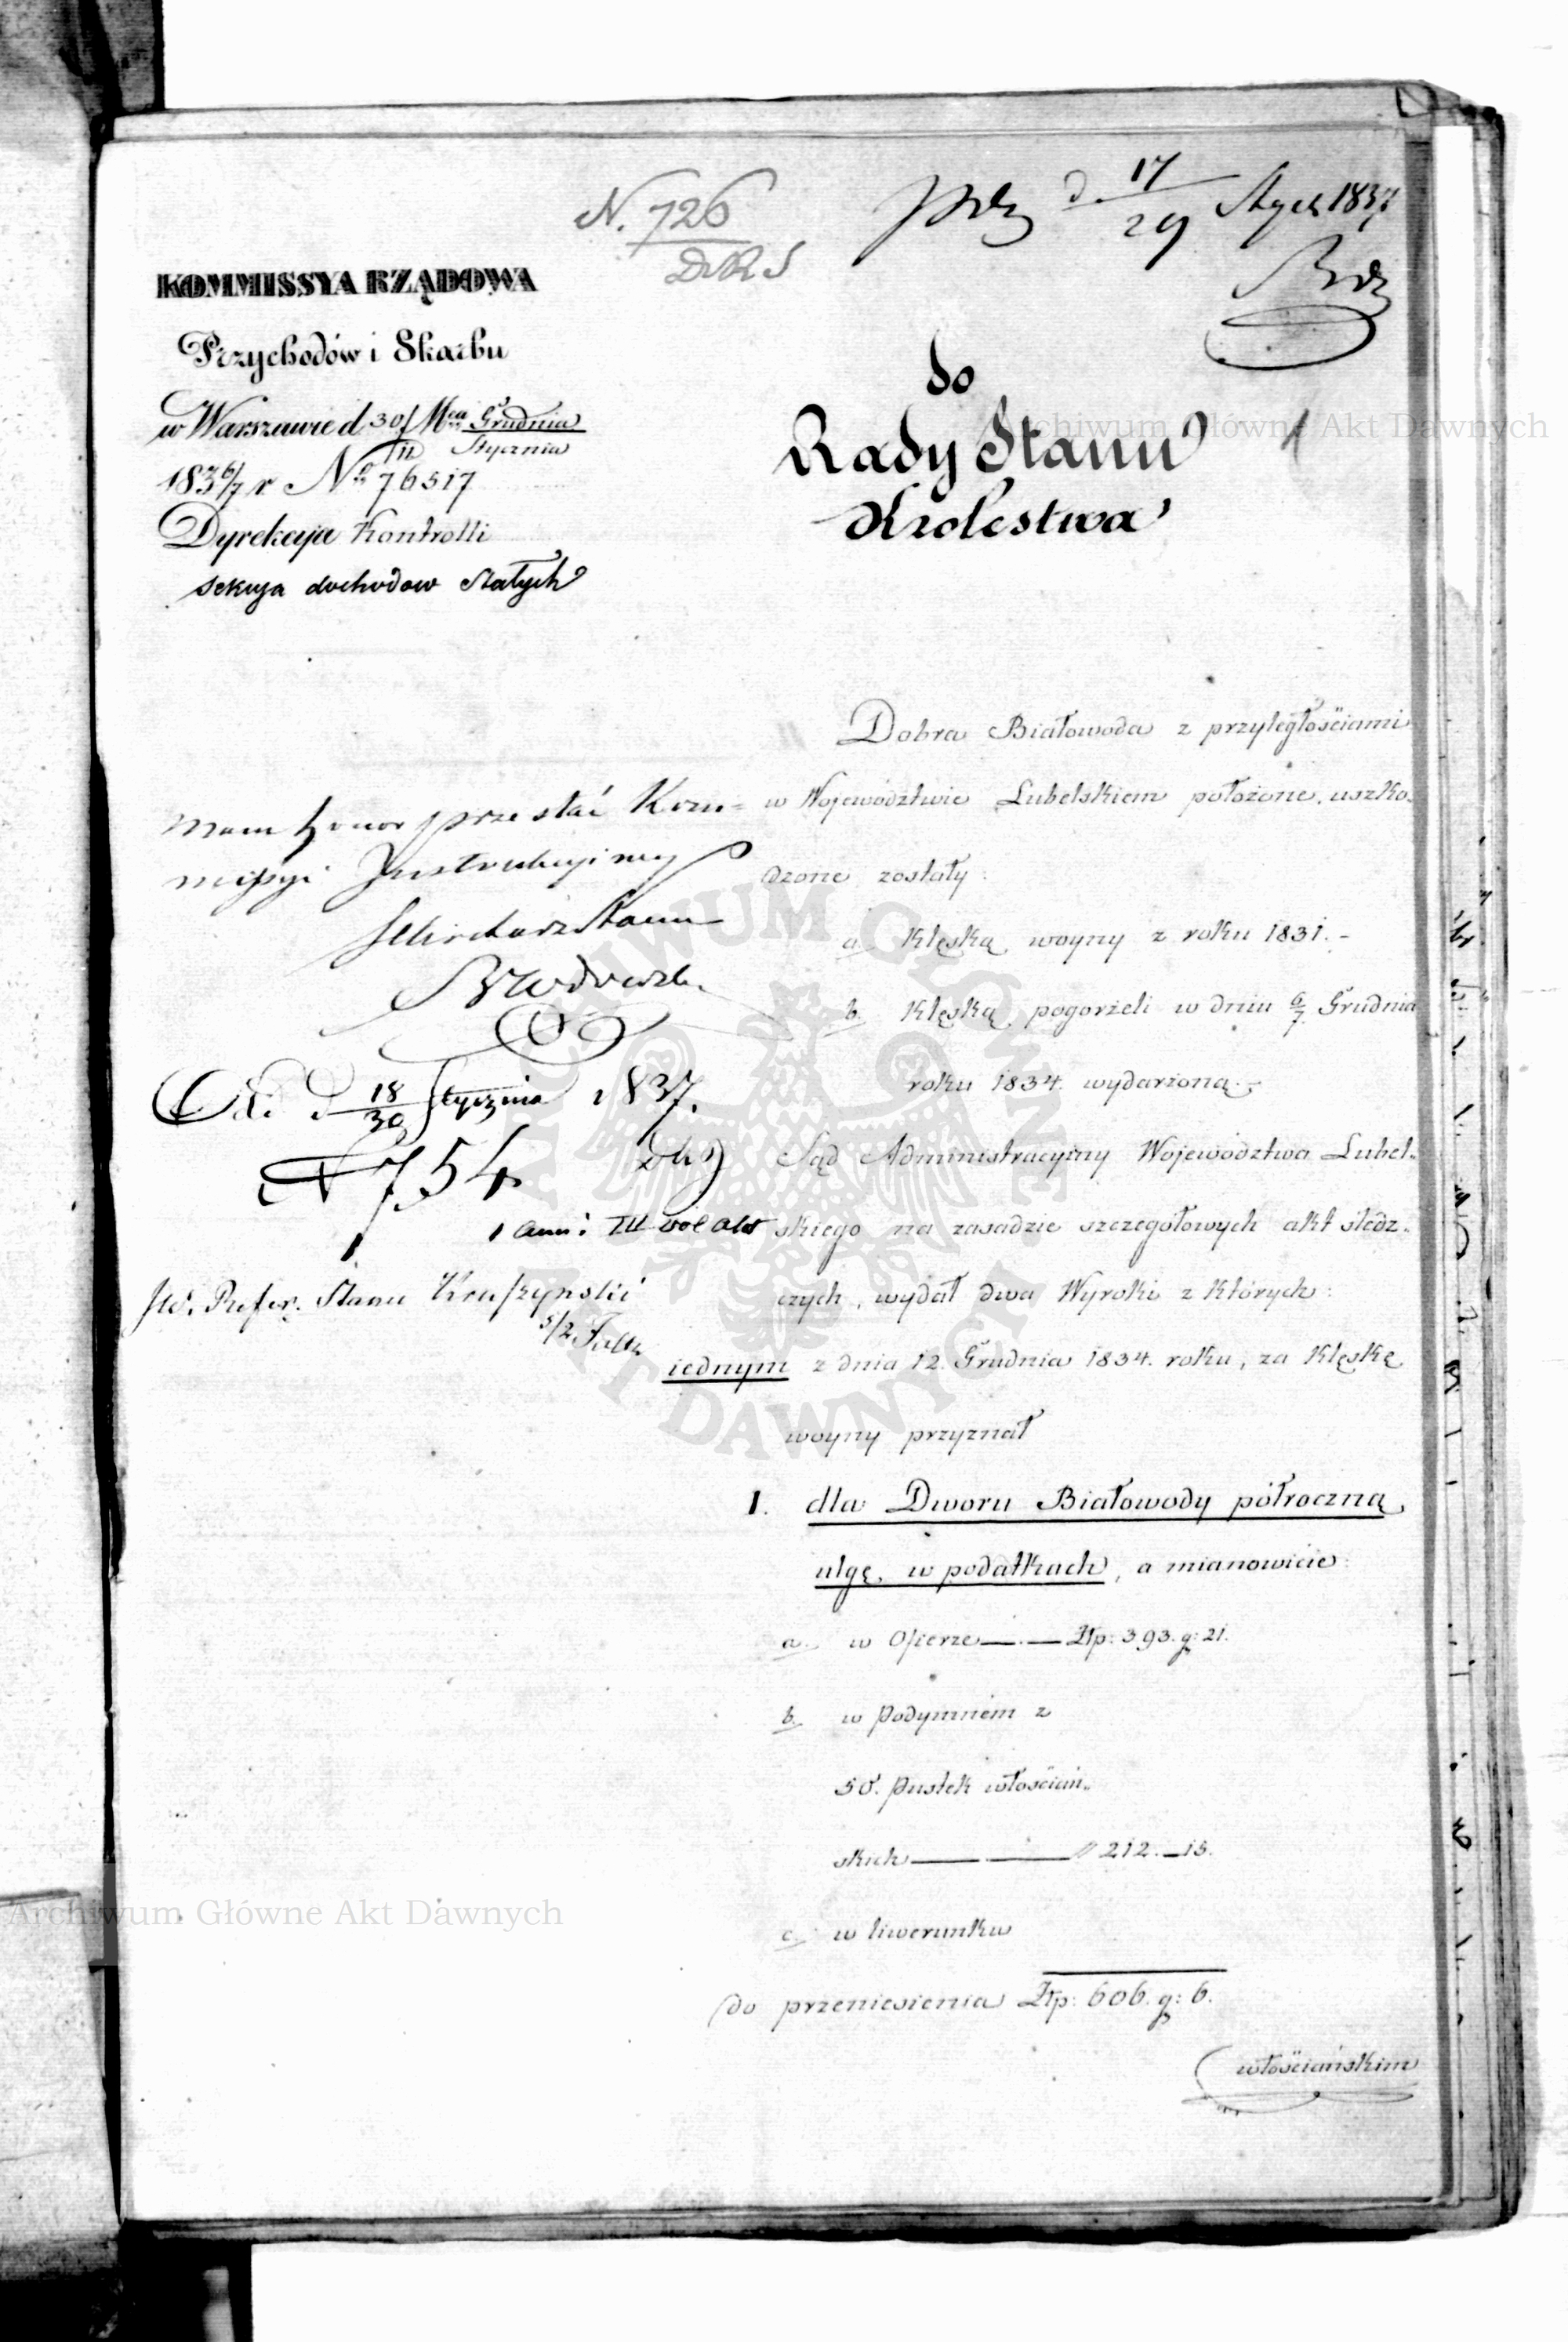 N. 726
DKS
d. 17/29 Stycz 1837
KOMMISSYA RZĄDOWA
Przychodów i Skarbu
w Warszawie d. 30/11 Mca Grudnia/Stycznia
1836/7 r. No 76517
Dyrekcyia Kontrolli
Sekcyja dochodow Stałych
do
Rady Stanu
Krolestwa
1
Dobra Białowoda z przyległościami
w Województwie Lubelskiem położone, uszko-
dzone zostały:
a. Klęską woyny z roku 1831.-
b. Klęską pogorżeli w dniu 6/7 Grudnia
roku 1834. wydarzoną.-
Sąd Administracyiny Województwa Lubel-
skiego na zasadzie szczegółowych akt sledz-
czych, wydał dwa Wyroki z których:
iednym z dnia 12. Grudnia 1834. roku, za klęskę
woyny przyznał
1. dla Dworu Białowody półroczną
ulgę w podatkach, a mianowicie:
a. w Ofierze — . — Złp: 393. g: 21.
b. w Podymném z
50. Pustek włościań-
skich — . — " 212. — 15.
c. w liwerunku
do przeniesienia Złp: 606. g: 6.
włościańskim
Mam honor przesłać Kom-
missyi Instrukcyiney
Sekretarz Stanu
Brodowski
d. 18/30 Stycznia 1837.
N 754
1 ann: III vol akt
JW. Refer. Stanu Kruszyński
5/2
Archiwum Główne Akt Dawnych
ARCHIWUM GŁÓWNE AKT DAWNYCH
Archiwum Główne Akt Dawnych